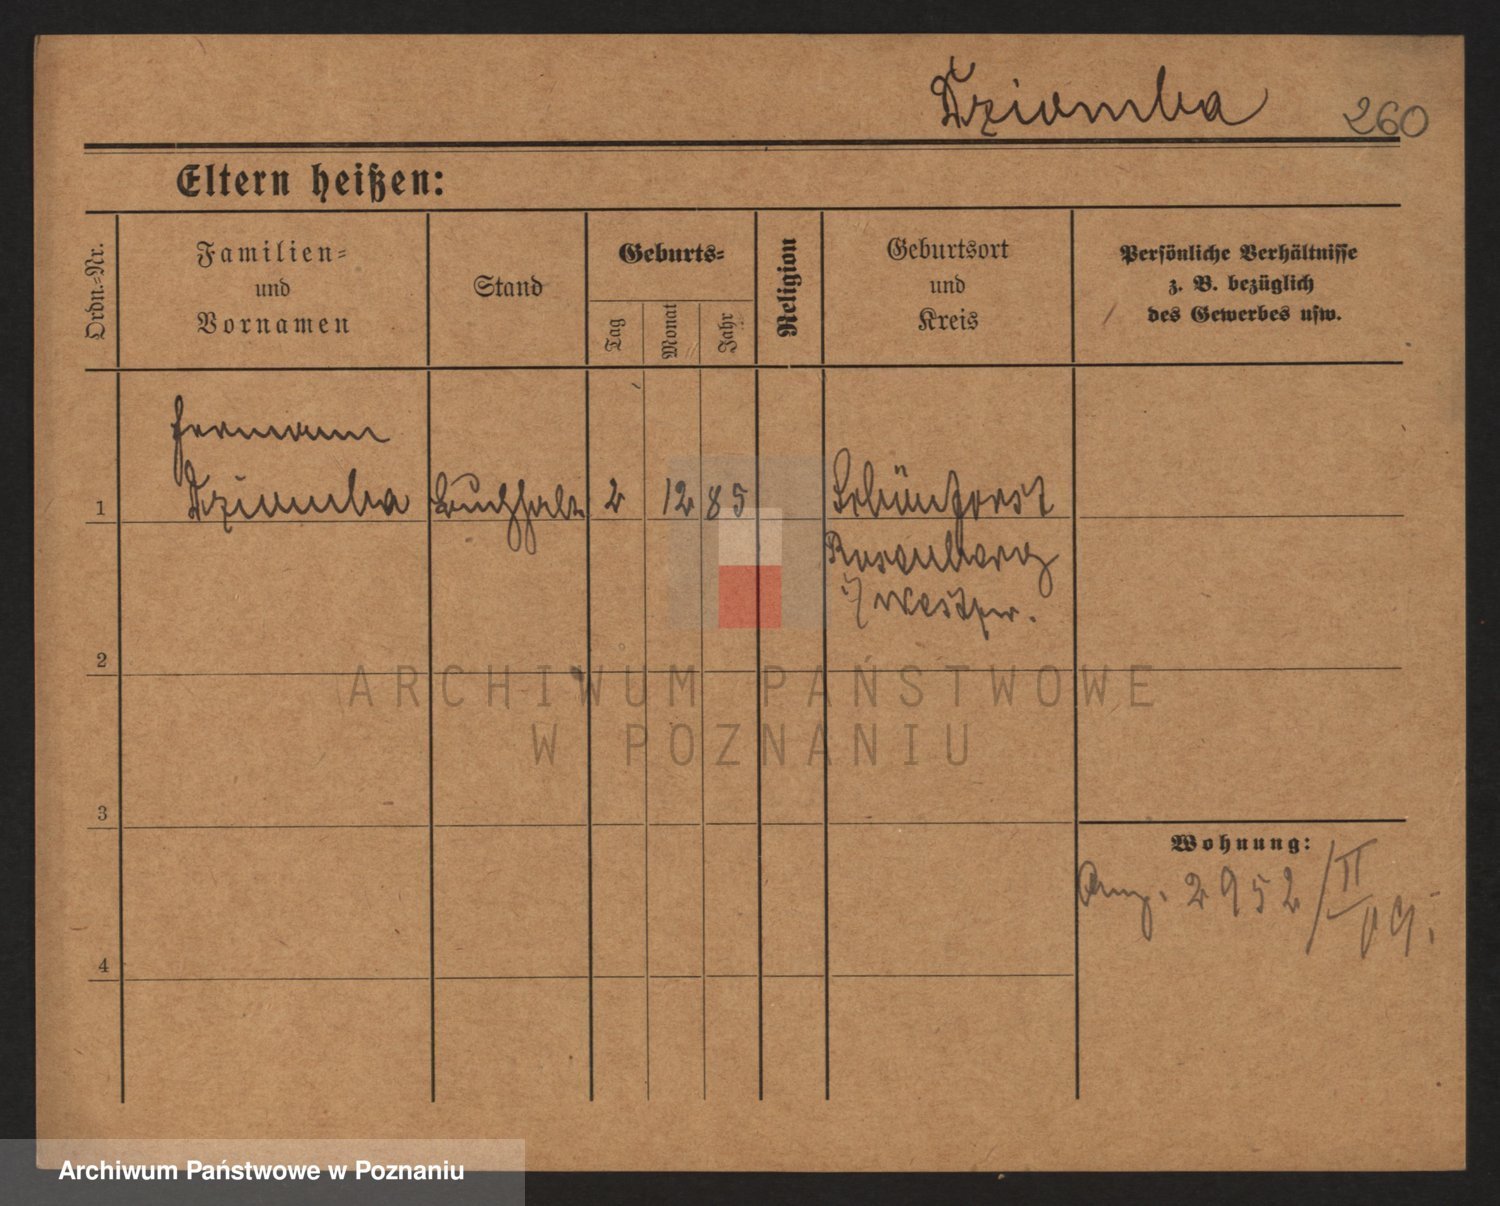 Dziomba 260
Eltern heißen:
Ordn.-Nr.
Familien-
und
Vornamen
Stand
Geburts-
Tag
Monat
Jahr
Religion
Geburtsort
und
Kreis
Persönliche Verhältnisse
z. B. bezüglich
des Gewerbes usw.
Hermann
1 Dziomba Buchhalt 2 12 85 Schönforst
Rosenberg
i/Westpr.
2
ARCHIWUM PAŃSTWOWE
W POZNANIU
3
Wohnung:
Anz. 2952/II
09.
4
Archiwum Państwowe w Poznaniu